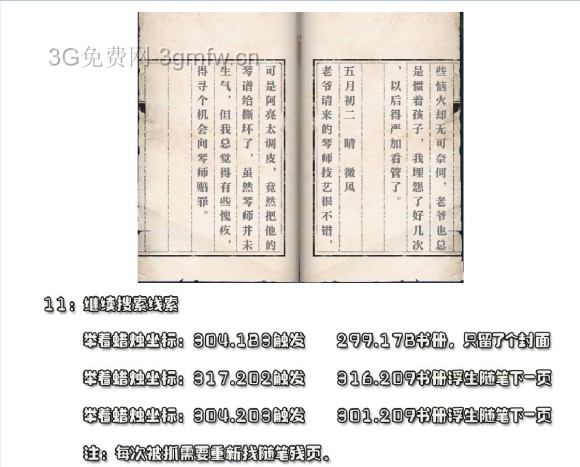 3G免费网 3gmfw.cn
些恼火却无可奈何，老爷也总
是惯着孩子，我埋怨了好几次
，以后得严加看管了。
五月初二 晴 微风
老爷请来的琴师技艺很不错，
可是阿亮太调皮，竟然把他的
琴谱给撕坏了，虽然琴师并未
生气，但我总觉得有些愧疚，
得寻个机会向琴师赔罪。
11：继续搜索线索
举着蜡烛坐标：304.183触发 299.178书册，只留了个封面
举着蜡烛坐标：317.202触发 316.209书册浮生随笔下一页
举着蜡烛坐标：304.203触发 301.209书册浮生随笔下一页
注：每次被抓需要重新找随笔残页。